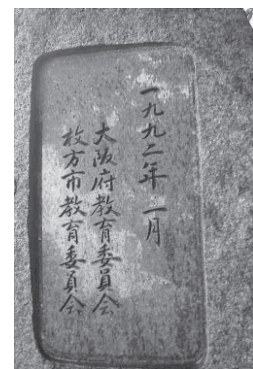 一九九二年二月
大阪府教育委員会
枚方市教育委員会